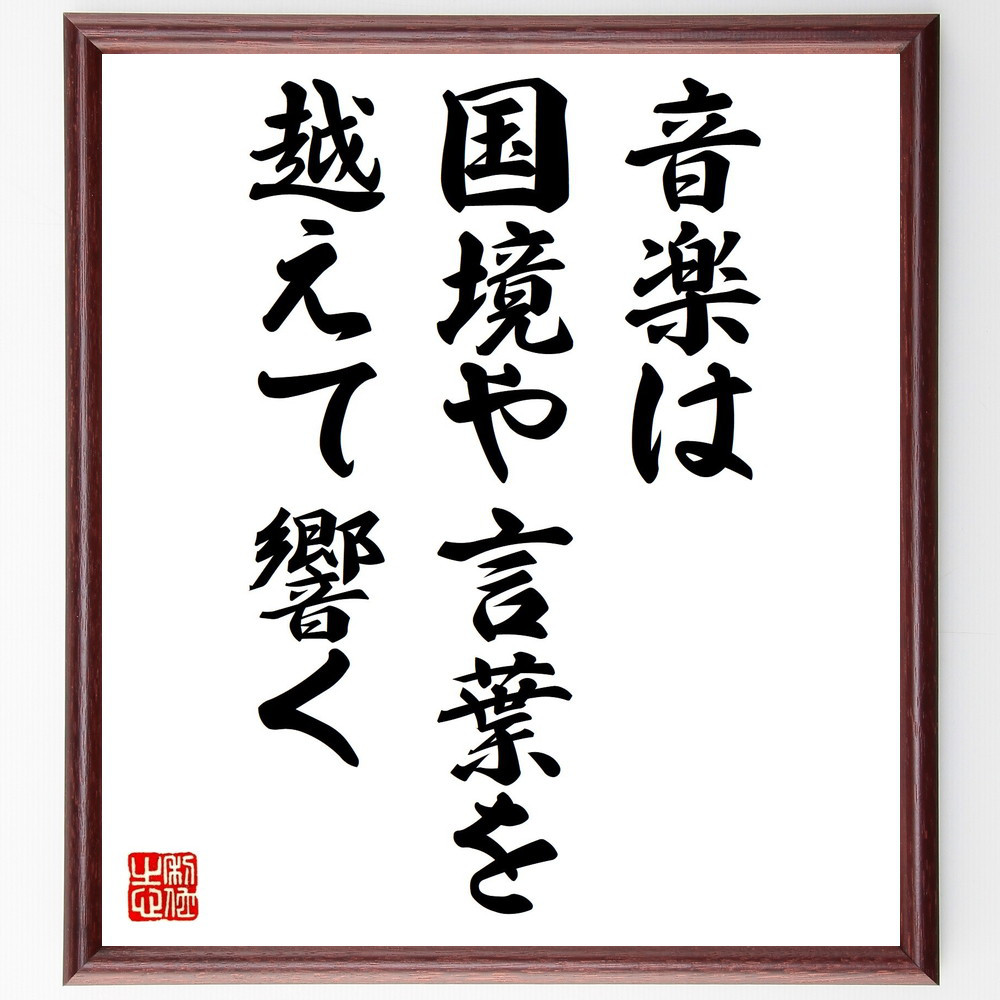 音楽は
国境や言葉を
越えて響く